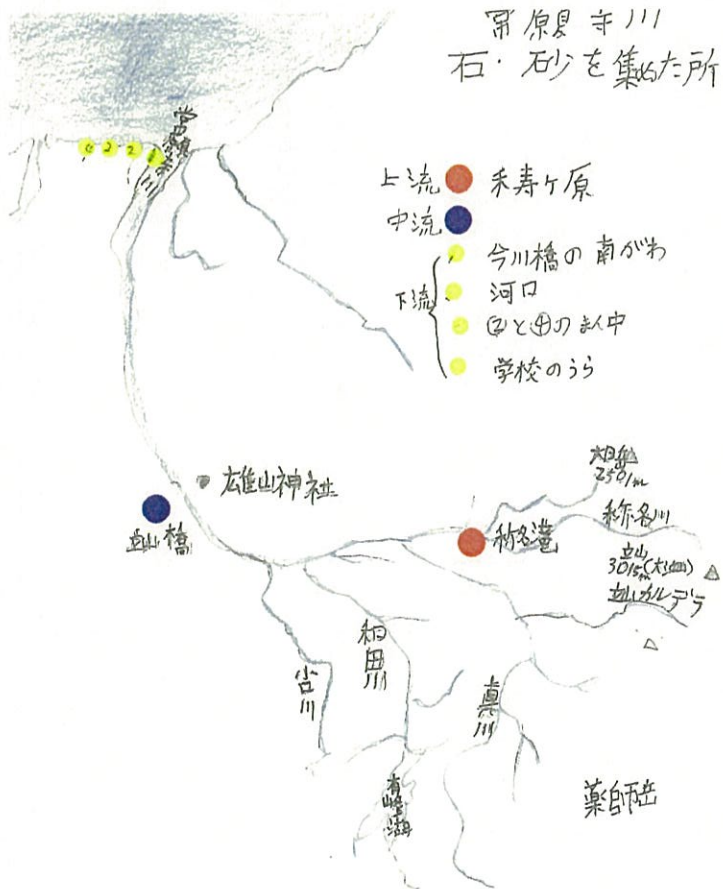 常願寺川
石・砂を集めた所
常願寺川
上流 禾寿ヶ原
中流
下流
今川橋の南がわ
河口
②と④のまん中
学校のうら
雄山神社
立山橋
大日岳
2501m
称名川
称名滝
立山
3015m(大汝山)
立山カルデラ
和田川
小口川
真川
有峰湖
薬師岳